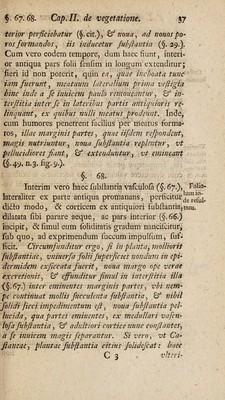 §. 67. 68. Cap. II. de vegetatione. 37
terior perficiebatur (§. cit.), & noua, ad nouos po-
ros formandos, iis inducetur substantia (§. 29.).
Cum vero eodem tempore, dum haec fiunt, interi-
or antiqua pars folii sensim in longum extenditur;
fieri id non poterit, quin ea, quae inchoata tunc
iam fuerunt, meatuum lateralium prima vestigia
hinc inde a se inuicem paulo remoueantur, & in-
terstitia inter se in lateribus partis antiquioris re-
linquant, ex quibus nulli meatus prodeunt. Inde,
cum humores penetrent facilius per meatus forma-
tos, illae marginis partes, quae iisdem respondent,
magis nutriuntur, noua substantia replentur, vt
pellucidiores fiant, & extenduntur, vt emineant
(§. 49. n. 3. fig. 9.).
§. 68.
Interim vero haec substantia vasculosa (§. 67.),
lateraliter ex parte antiqua promanans, perficitur
dicto modo, & corticem ex antiquiori substantia
dilatata sibi parare aeque, ac pars interior (§. 66.)
incipit, & simul cum soliditatis gradum nanciscitur,
sub quo, ad exprimendum succum impulsum, suf-
ficit. Circumfunditur ergo, si in planta, mollioris
substantiae, vniuersa folii superficies nondum in epi-
dermidem exsiccata fuerit, noua margo ope verae
excretionis, & effunditur simul in interstitia illa
(§. 67.) inter eminentes marginis partes, vbi nem-
pe continuat mollis succulenta substantia, & nihil
solidi sicci impedimentum est, noua substantia pel-
lucida, qua partes eminentes, ex medullari vascu-
losa substantia, & adultiori cortice nunc constantes,
a se inuicem magis separantur. Si vero, vt Ca-
staneae, plantae substantia citius solidescat: haec
Folio-
lum in-
de resul-
tans.
C 3
vlteri-